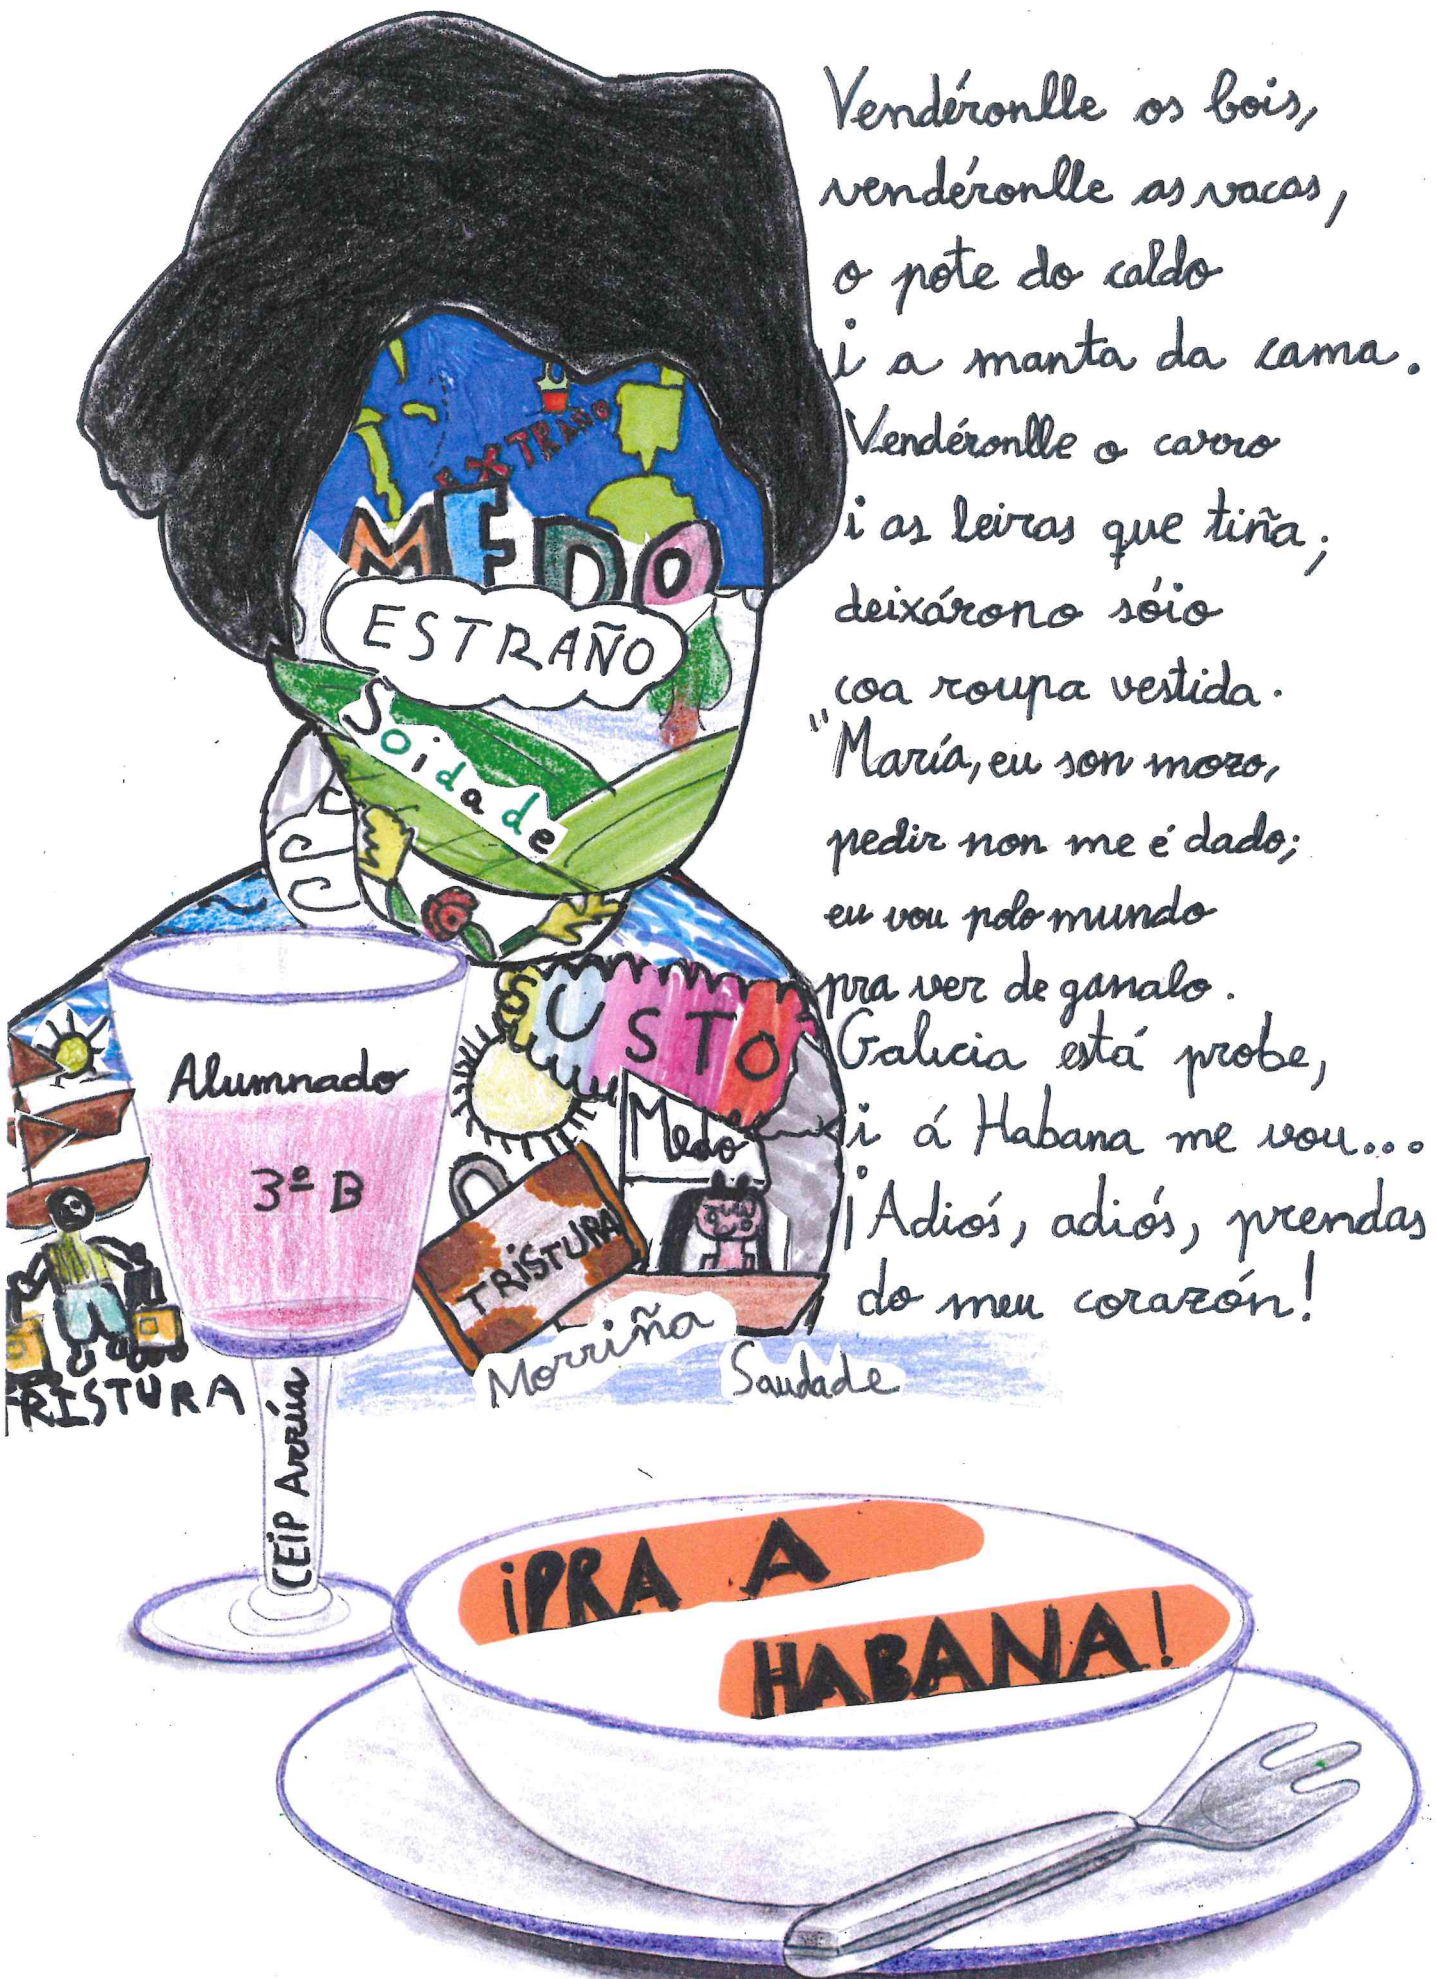 Vendéronlle os bois,
vendéronlle as vacas,
o pote do caldo
i a manta da cama.
Vendéronlle o carro
i as leiras que tiña;
deixárono sóio
coa roupa vestida.
"María, eu son mozo,
pedir non me é dado;
eu vou polo mundo
pra ver de ganalo.
Galicia está probe,
i á Habana me vou...
¡Adiós, adiós, prendas
do meu corazón!
EXTRAÑO
MEDO
ESTRAÑO
Soidade
SUSTO
Medo
TRISTURA
Morriña
Saudade
RISTURA
Alumnado
3º B
CEIP Arrúa
¡PRA A
HABANA!